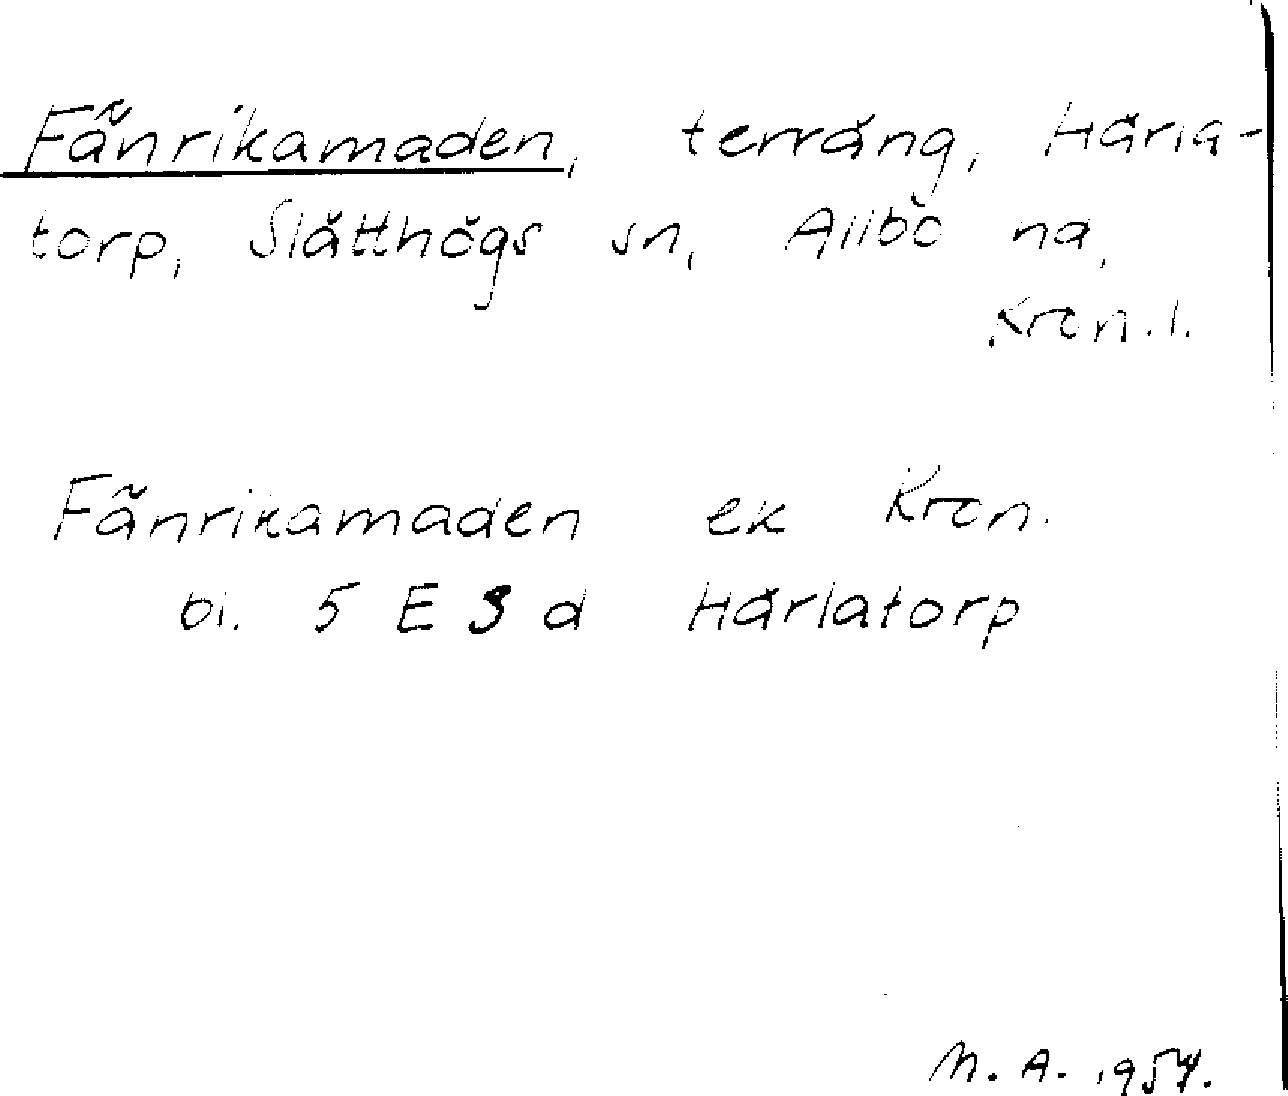 Fänrikamaden, terräng, Härla-
torp, Slätthögs sn, Allbo hd,
Kron. l.
Fänrikamaden ek Kron.
bl. 5 E 3 d Härlatorp
M. A. 1957.